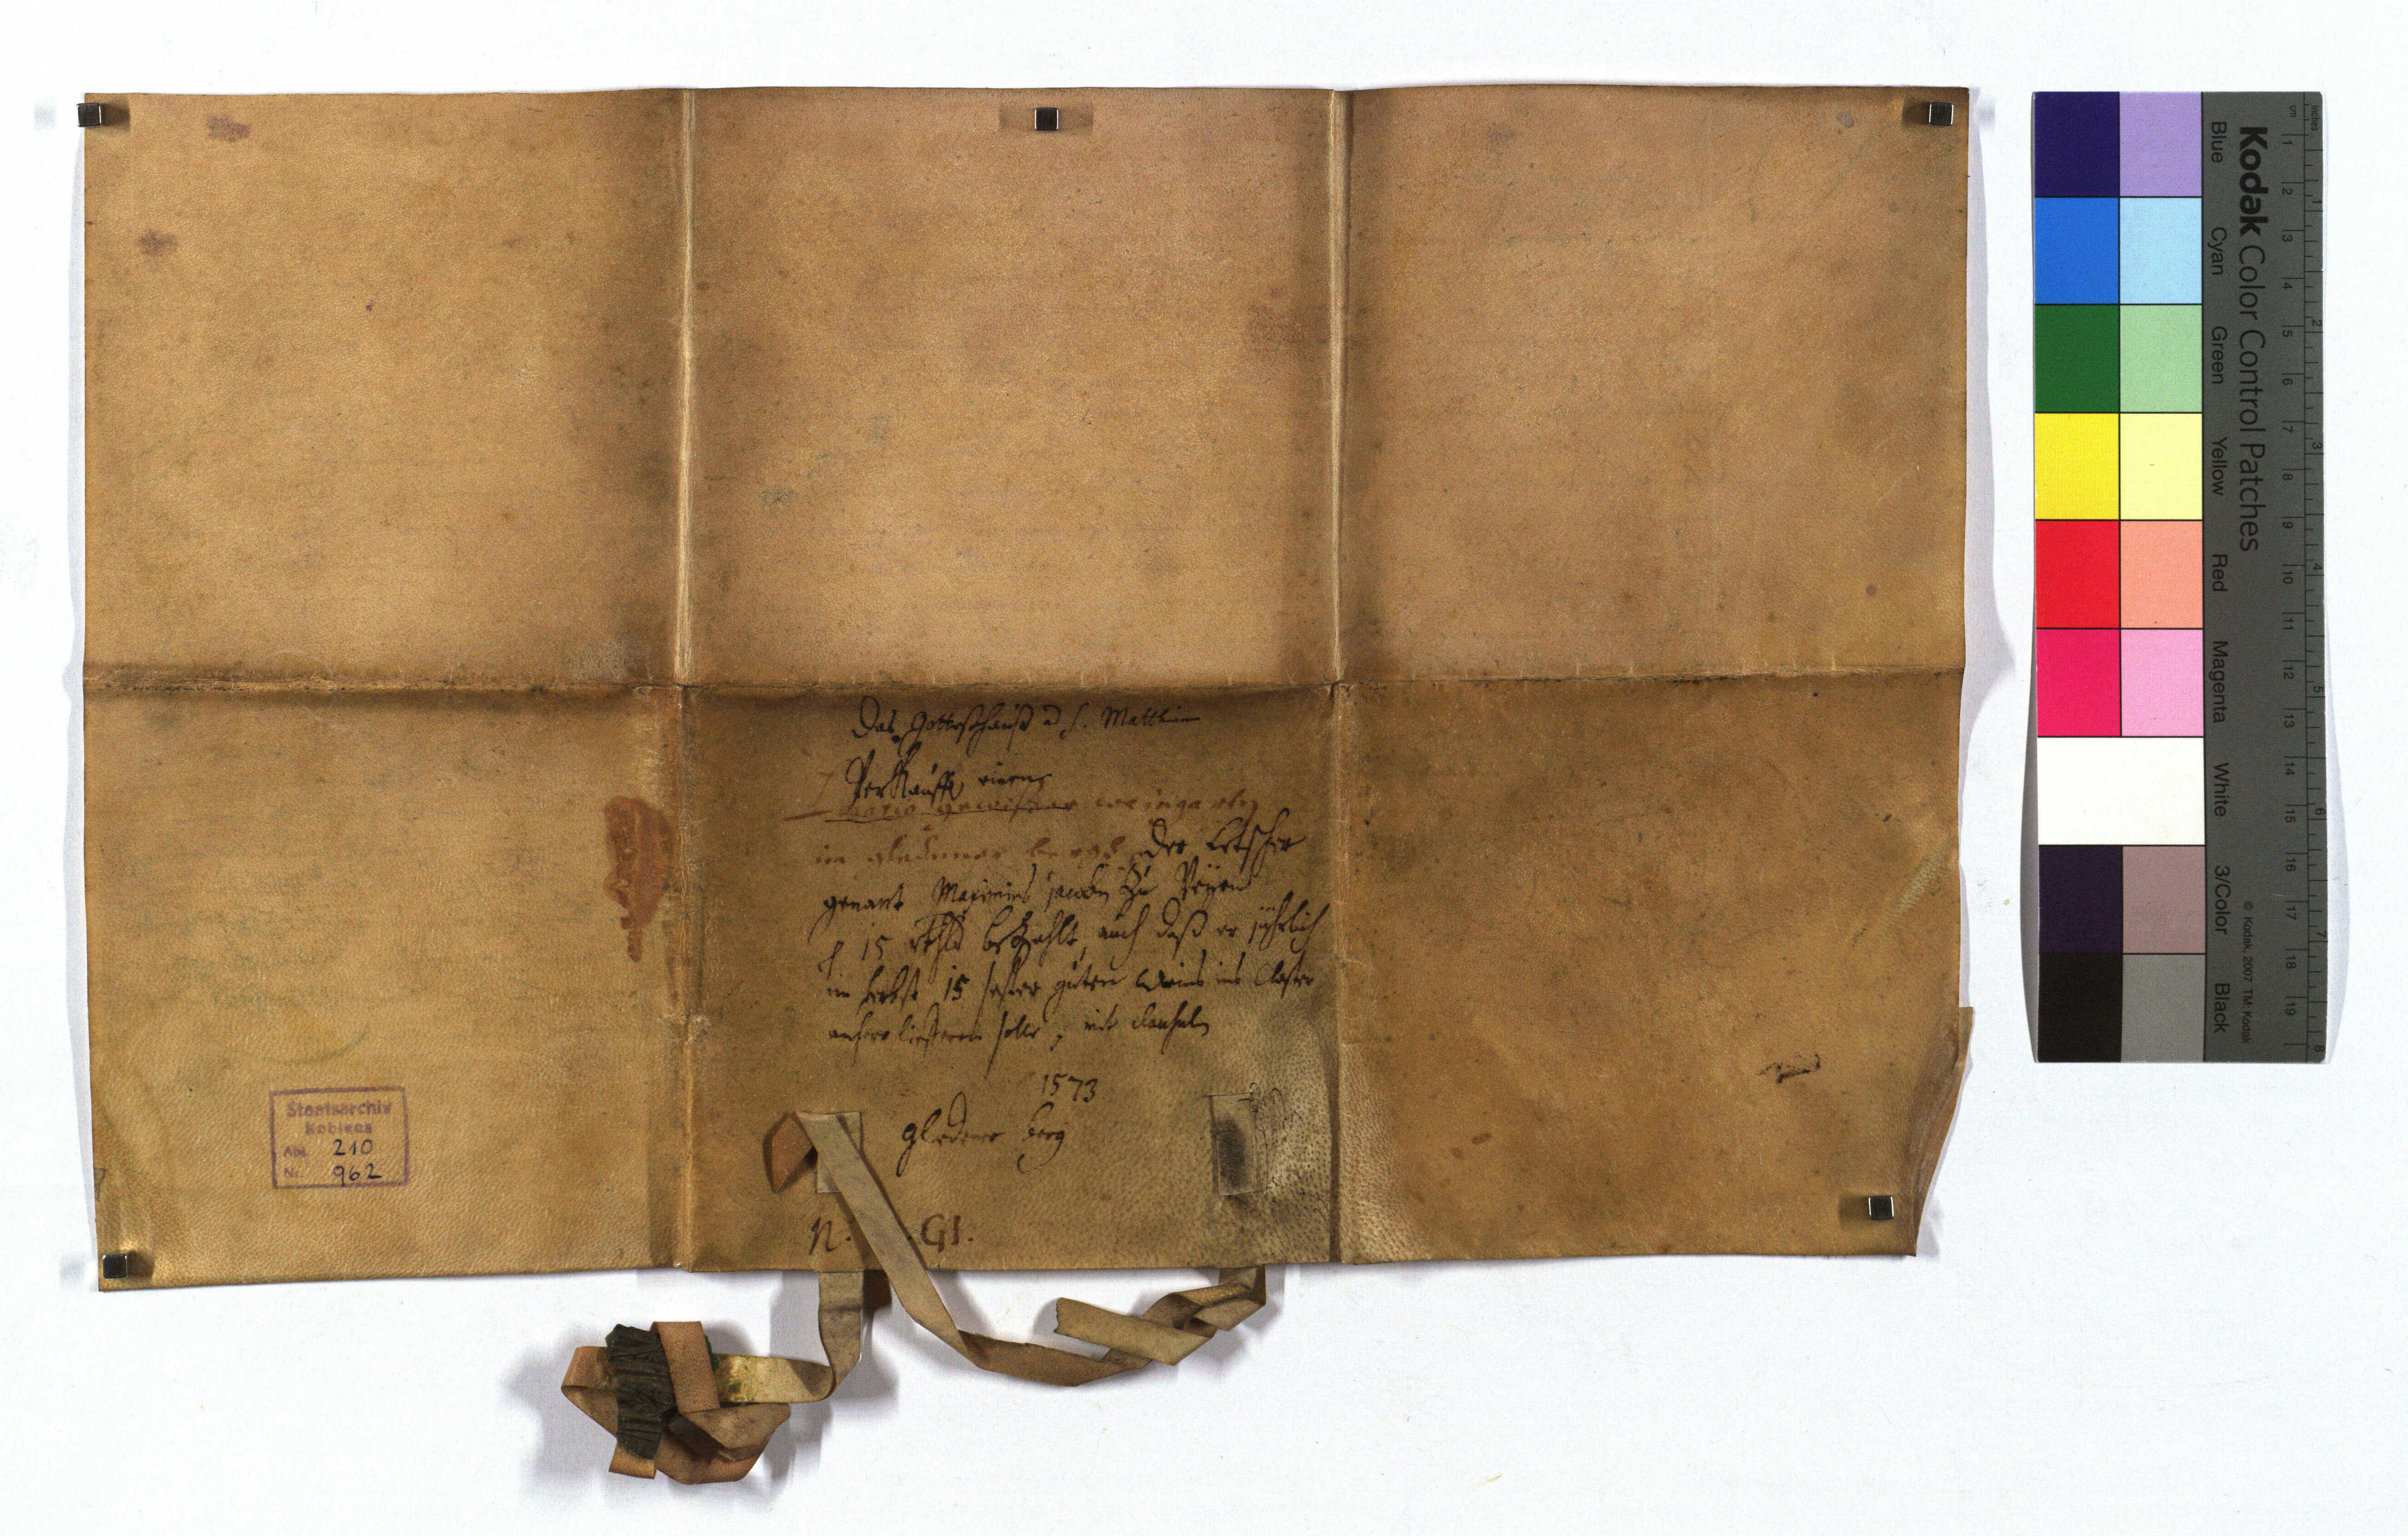 Das Gotteßhauß ad S. Matthiam
Verkaufft einen
weingarten
im gledener berg der
genant Maximins Jacoben zu
p 15 rthlr bezahlt, auch daß er jährlich
im herbst 15 sester guten weins ins Closter
anhero lieferen solle, mit
1573
gledener berg
N. .G1.
Staatsarchiv
Koblenz
Abt. 210
Nr. 962
Kodak Color Control Patches
Blue Cyan Green Yellow Red Magenta White 3/Color Black
© Kodak, 2007 TM: Kodak
inches 1 2 3 4 5 6 7 8
cm 1 2 3 4 5 6 7 8 9 10 11 12 13 14 15 16 17 18 19